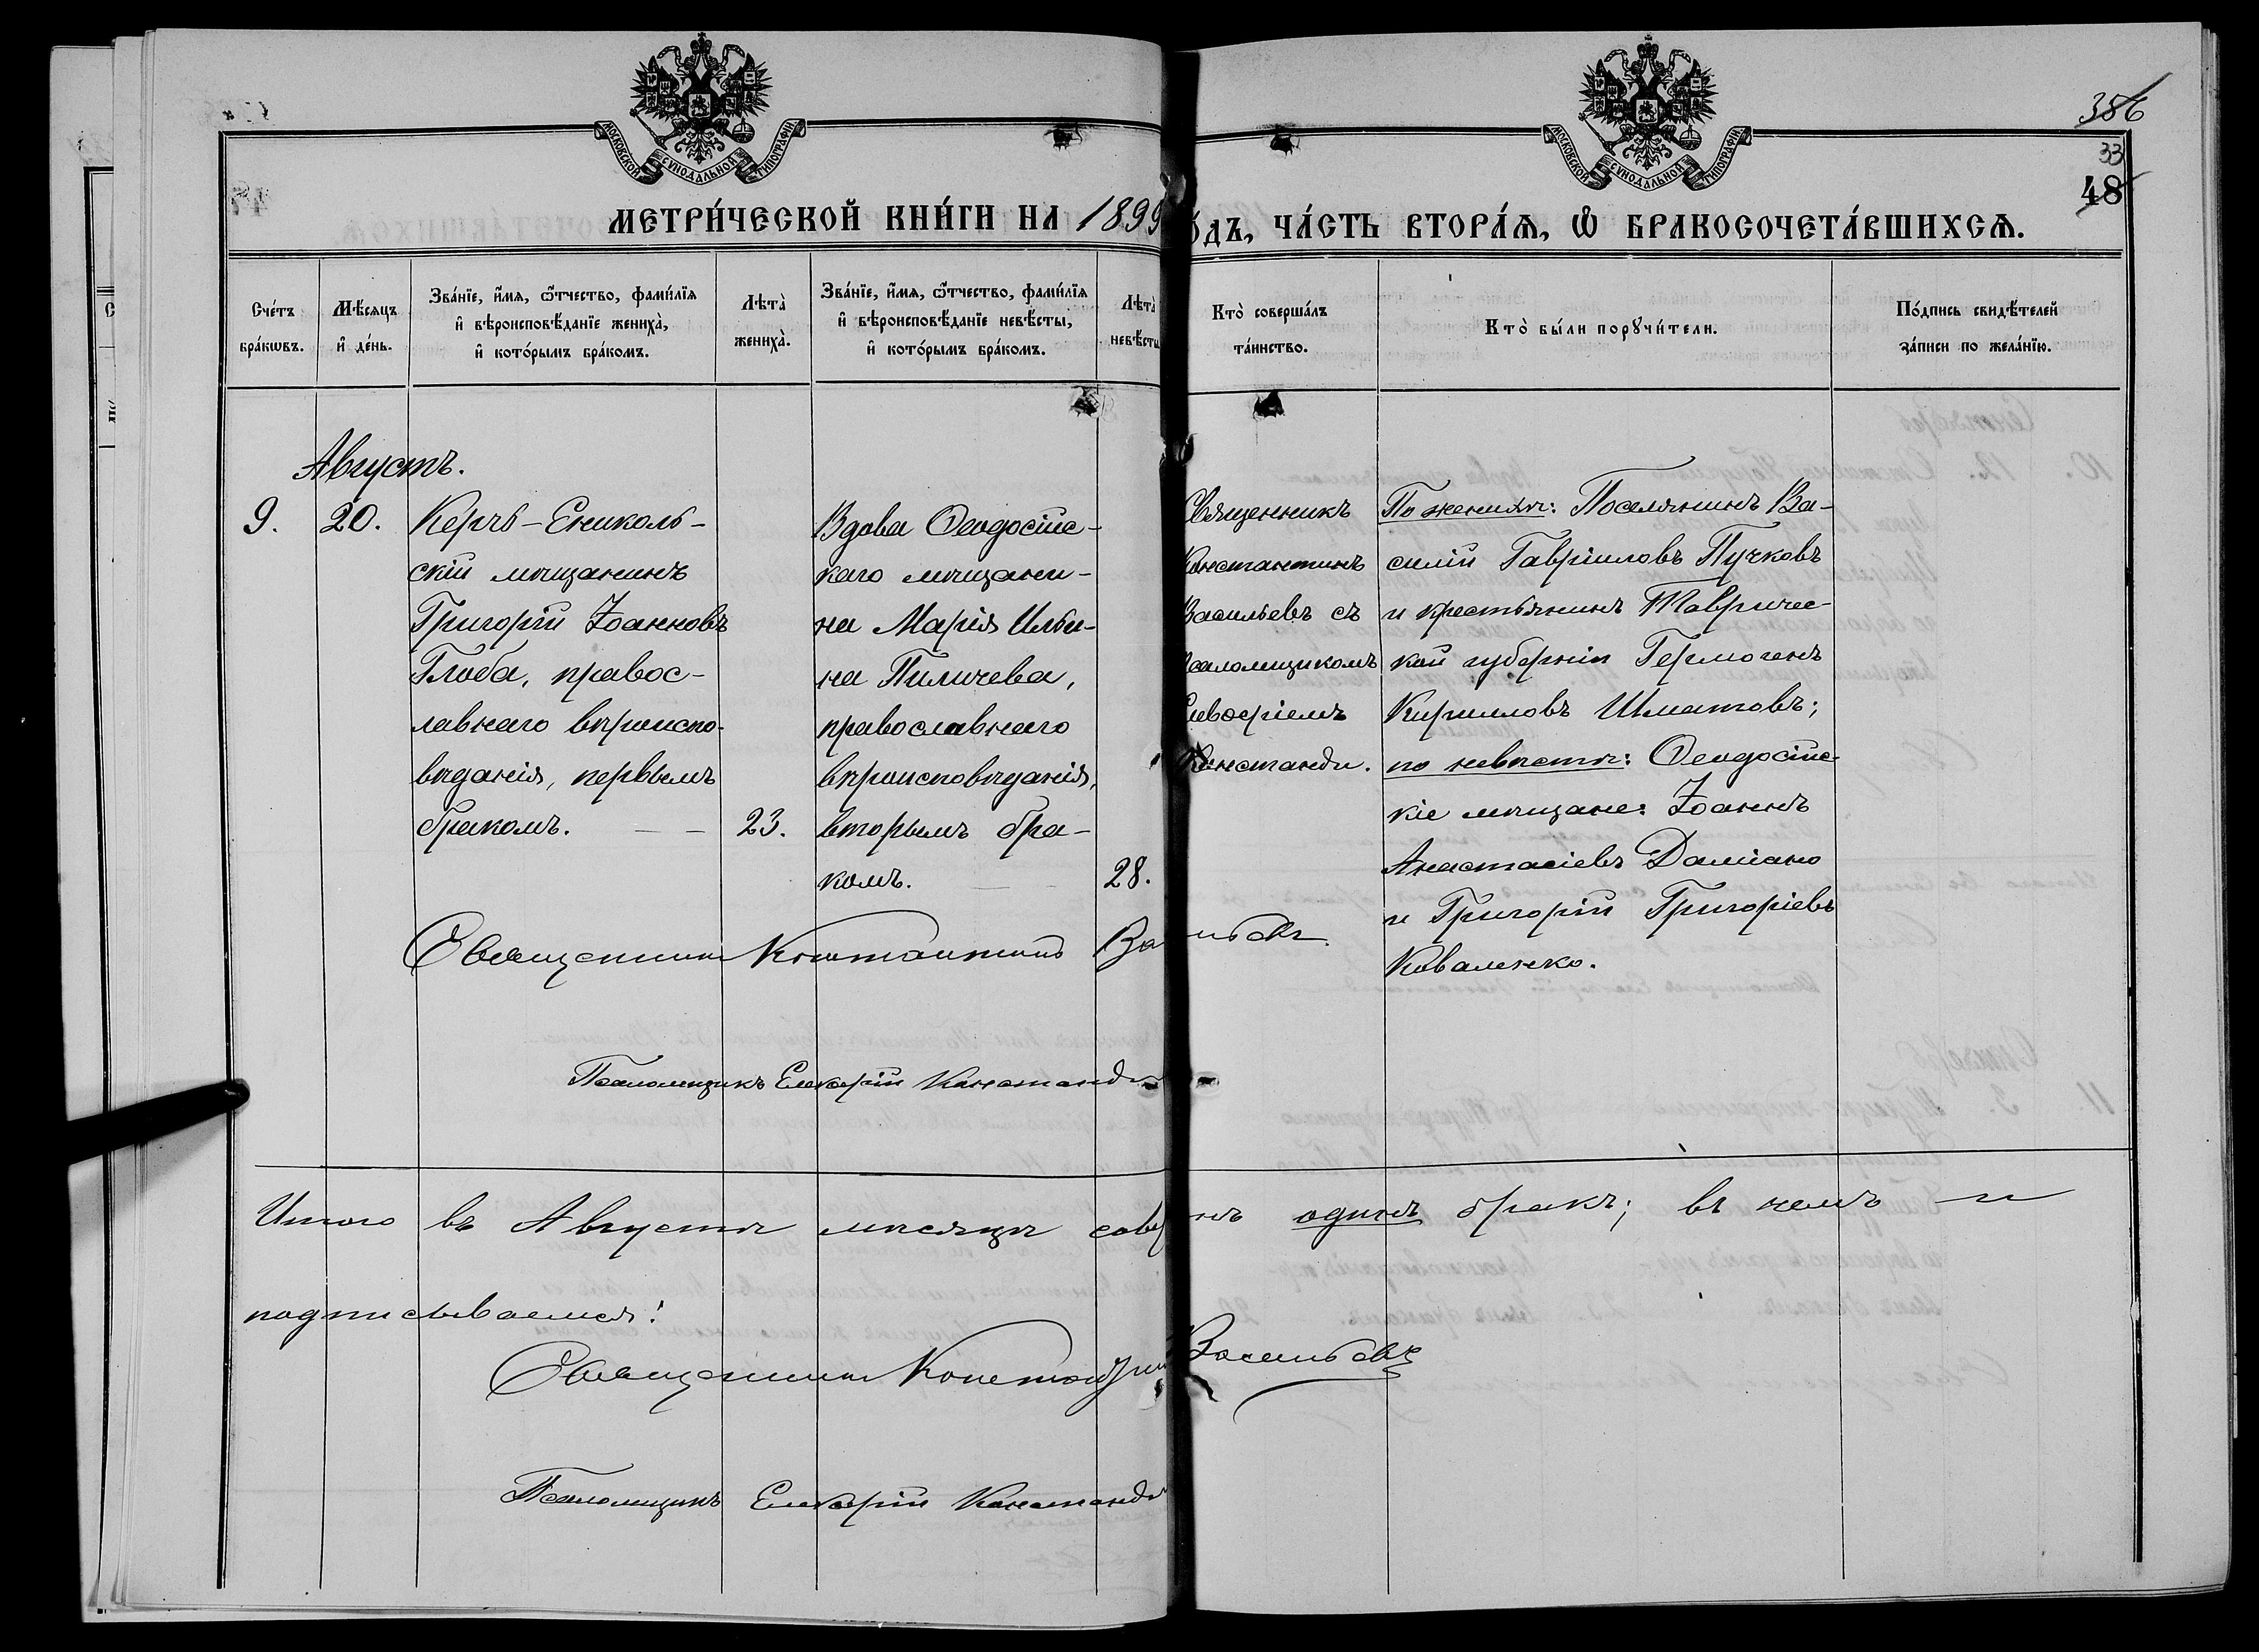 386
33
48
МОСКОВСКОЙ СУНОДАЛЬНОЙ ТИПОГРАФІИ
МОСКОВСКОЙ СУНОДАЛЬНОЙ ТИПОГРАФІИ
МЕТРИ́ЧЕСКОЙ КНИ́ГИ НА 1899
о́дъ, ЧА́СТЬ ВТОРА́Ѧ, Ѡ҆ БРАКОСОЧЕТА́ВШИХСѦ.
Сче́тъ
бра́кѡвъ.
Мѣ́сѧцъ
и҆ де́нь.
Зва́нїе, и҆́мѧ, ѻ҆́тчество, фами́лїѧ
и҆ вѣроисповѣ́данїе жениха̀,
и҆ кото́рымъ бра́комъ.
Лѣта̀
жениха̀.
Зва́нїе, и҆́мѧ, ѻ҆́тчество, фами́лїѧ
и҆ вѣроисповѣ́данїе невѣ́сты,
и҆ кото́рымъ бра́комъ.
Лѣта̀
невѣ́сты
Кто̀ соверша́лъ
та́инство.
Кто̀ бы́ли порꙋчи́тели.
По́дпись свидѣ́телей
за́писи по жела́нїю.
Августъ.
9.
20.
Керчь-Ениколь-
скій мѣщанинъ
Григорій Іоанновъ
Глоба, правос-
лавнаго вѣроиспо-
вѣданія, первымъ
бракомъ.
23.
Вдова Ѳеодосійс-
каго мѣщани-
на Марія Ильи-
на Пиличева,
православнаго
вѣроисповѣданія,
вторымъ бра-
комъ.
28.
Священникъ
Константинъ
Васильевъ съ
псаломщикомъ
Елевѳеріемъ
Констанди.
По женихѣ: Поселянинъ Ва-
силій Гавріиловъ Пучковъ
и крестьянинъ Тавричес-
кой губерніи Гермогенъ
Кирилловъ Шматовъ;
по невѣстѣ: Ѳеодосійс-
кіе мѣщане: Іоаннъ
Анастасіевъ Даміано
и Григорій Григоріевъ
Коваленко.
Священникъ Константинъ Васильевъ.
Псаломщикъ Елевѳерій Констанди
Итого въ Августѣ мѣсяцѣ совер нъ одинъ бракъ; въ чемъ и
подписываемся:
Священникъ Константинъ Васильевъ
Псаломщикъ Елевѳерій Констанди